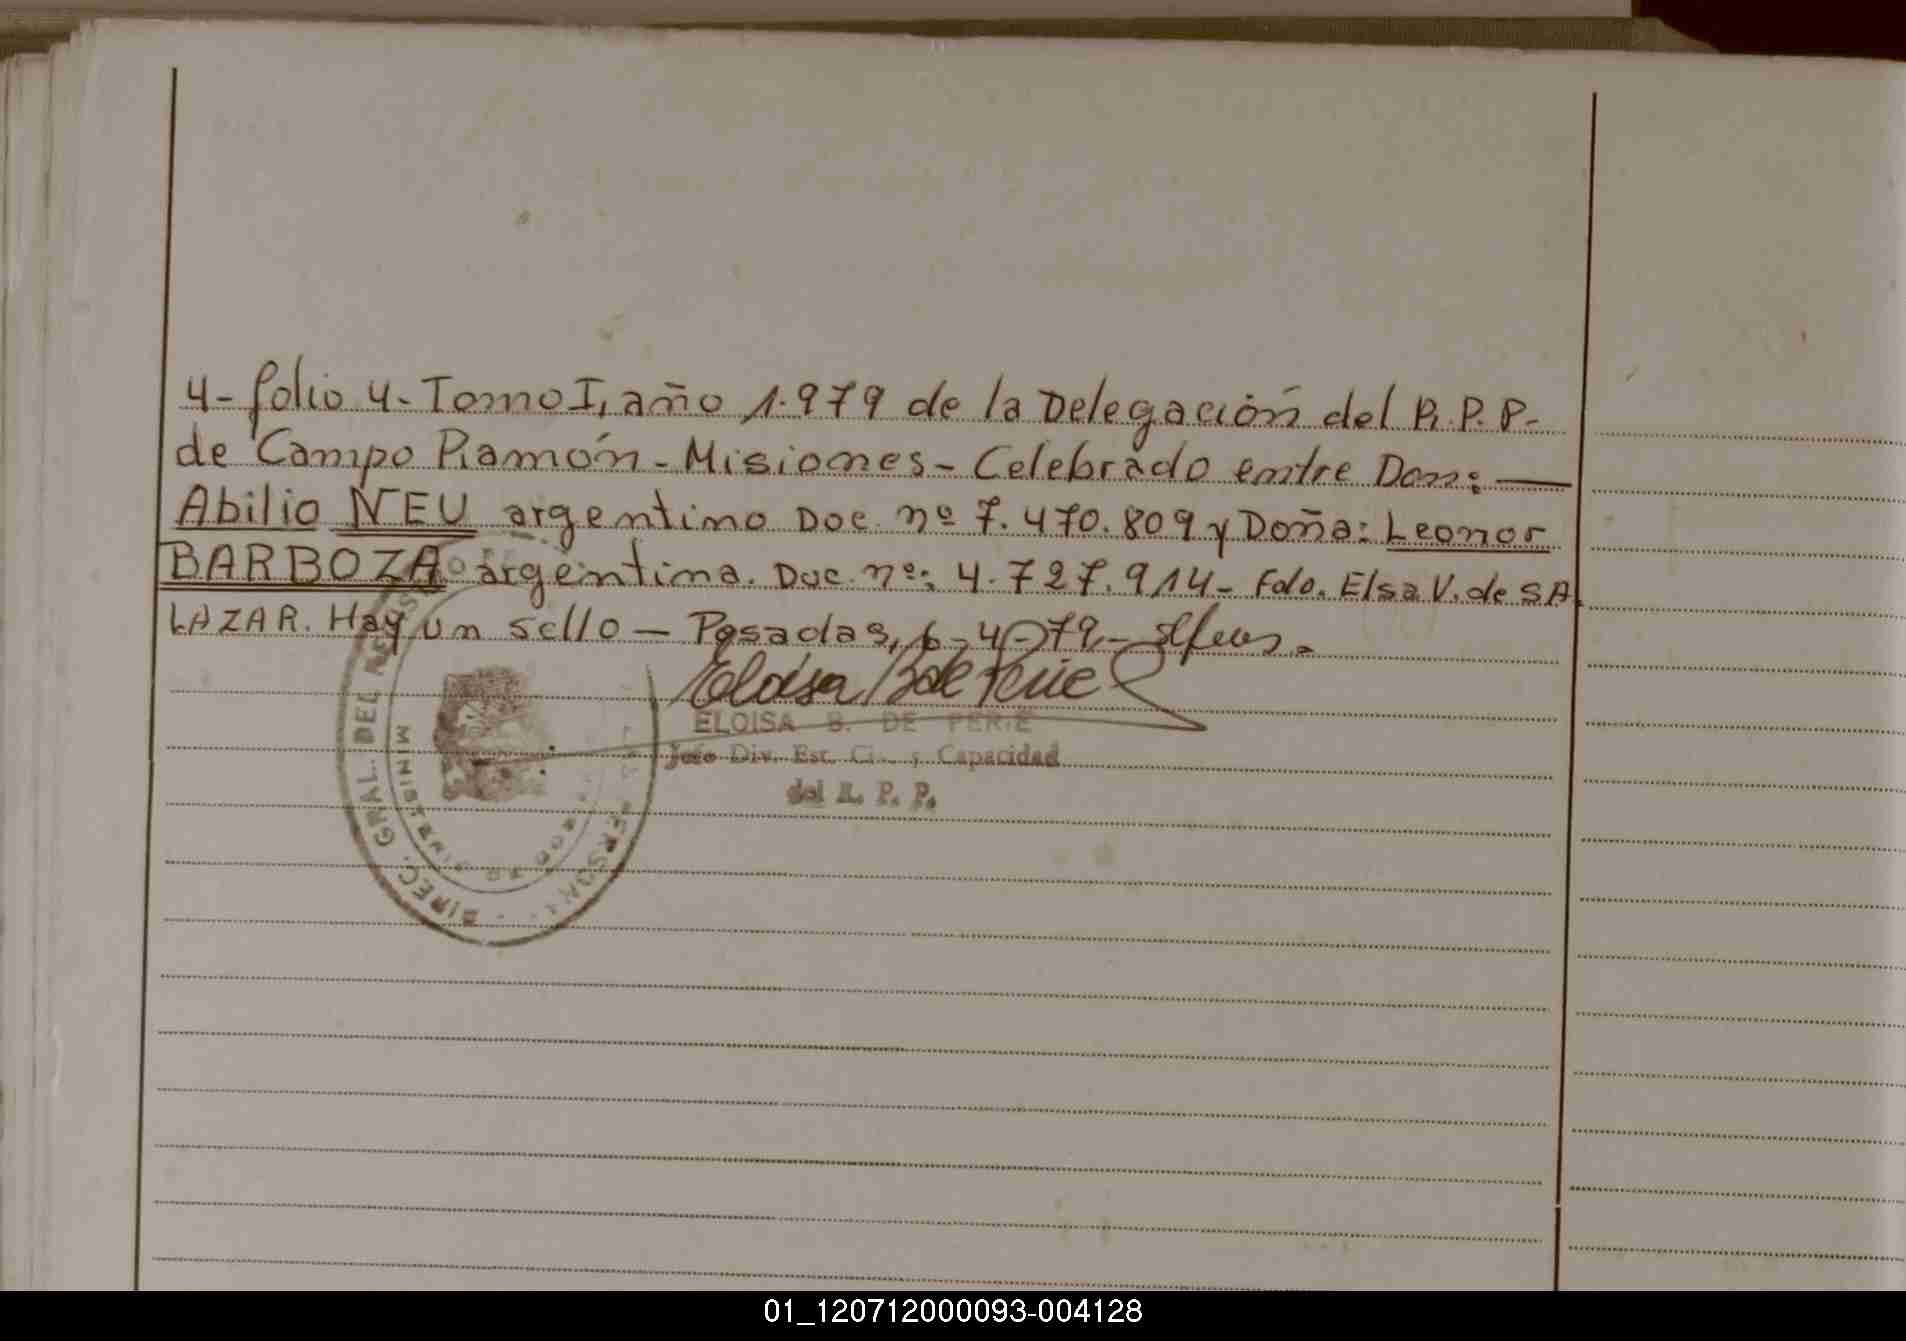 4- folio 4- Tomo I, año 1.979 de la Delegación del R.P.P.-
de Campo Ramón - Misiones - Celebrado entre Don: —
Abilio NEU argentino Doc. nº 7.470.809 y Doña: Leonor
BARBOZA argentina. Doc. nº: 4.727.914 - Fdo. Elsa V. de SA
LAZAR. Hay un sello — Posadas, 6-4-79-
Eloisa B de Perie
ELOISA B. DE PERIE
Jefe Div. Est. Ci. y Capacidad
del R. P. P.
DIREC. GRAL. DEL
MINISTE
01_120712000093-004128